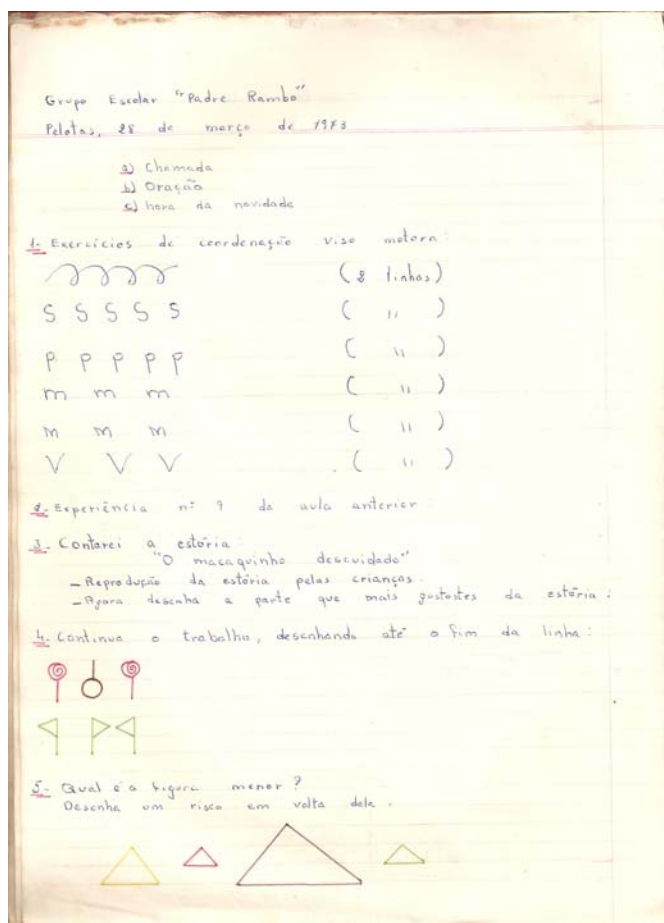 Grupo Escolar "Padre Rambo"
Pelotas, 28 de março de 1973
a) Chamada
b) Oração
c) hora da novidade
1- Exercícios de coordenação viso motora:
(2 linhas)
S S S S S ( " )
P P P P P ( " )
m m m ( " )
m m m ( " )
V V V ( " )
2- Experiência nº 9 da aula anterior
3- Contarei a estória:
"O macaquinho descuidado"
- Reprodução da estória pelas crianças.
- Agora desenha a parte que mais gostastes da estória:
4- Continua o trabalho, desenhando até o fim da linha:
5- Qual é a figura menor?
Desenha um risco em volta dela.